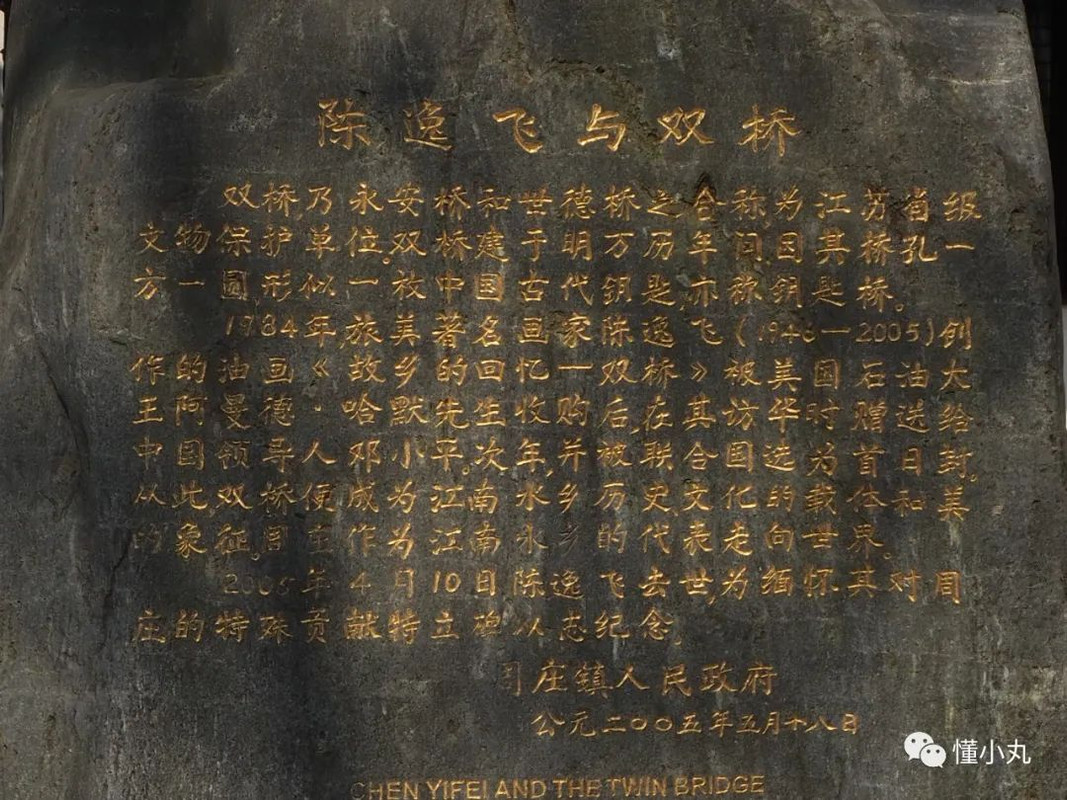 陈逸飞与双桥
双桥,乃永安桥和世德桥之合称,为江苏省级
文物保护单位。双桥建于明万历年间,因其桥孔一
方一圆,形似一枚中国古代钥匙,亦称钥匙桥。
1984年,旅美著名画家陈逸飞(1946—2005)创
作的油画《故乡的回忆—双桥》被美国石油大
王阿曼德·哈默先生收购后,在其访华时赠送给
中国领导人邓小平。次年,并被联合国选为首日封。
从此,双桥便成为江南水乡历史,文化的载体和美
的象征。周庄作为江南水乡的代表走向世界。
2005年4月10日陈逸飞去世,为缅怀其对周
庄的特殊贡献特立碑以志纪念。
周庄镇人民政府
公元二〇〇五年五月十八日
CHEN YIFEI AND THE TWIN BRIDGE
懂小丸